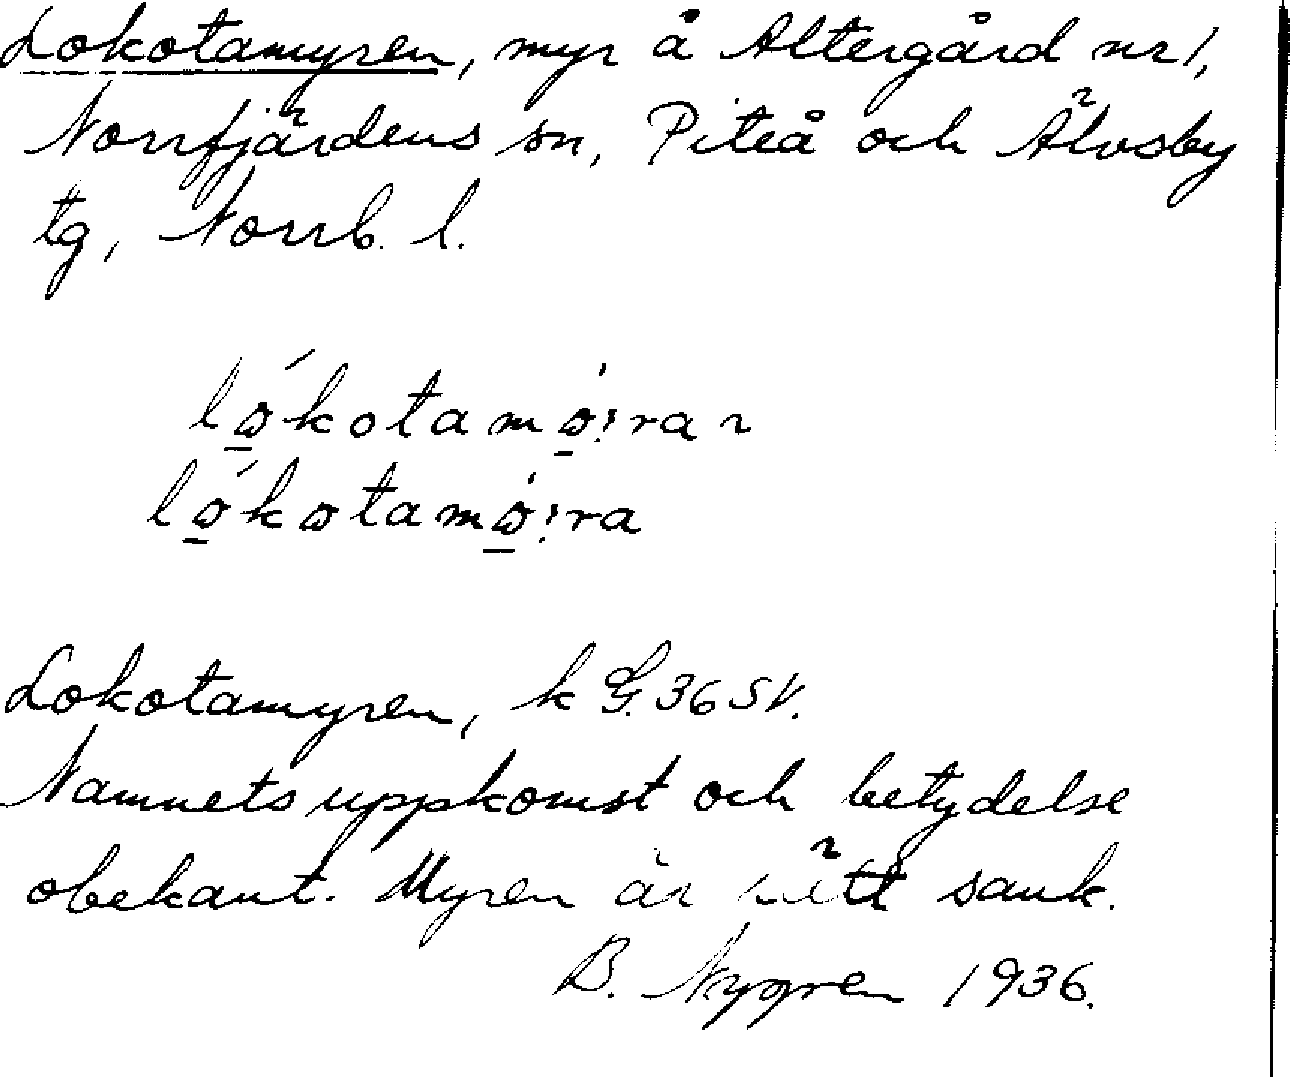 Lokotamyren, myr å Altergård nr 1,
Norrfjärdens sn, Piteå och Älvsby
tg, Norrb. l.
lǿkotamǿ:ra n
lǿkøtamǿ:ra
Lokotamyren, k G. 36 SV.
Namnets uppkomst och betydelse
obekant. Myren är sank.
B. Nygren 1936.